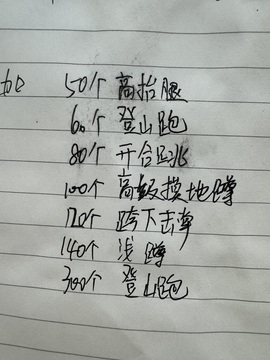 加 50个 高抬腿
60个 登山跑
80个 开合跳
100个 高级摸地蹲
120个 跨下击掌
140个 浅蹲
300个 登山跑